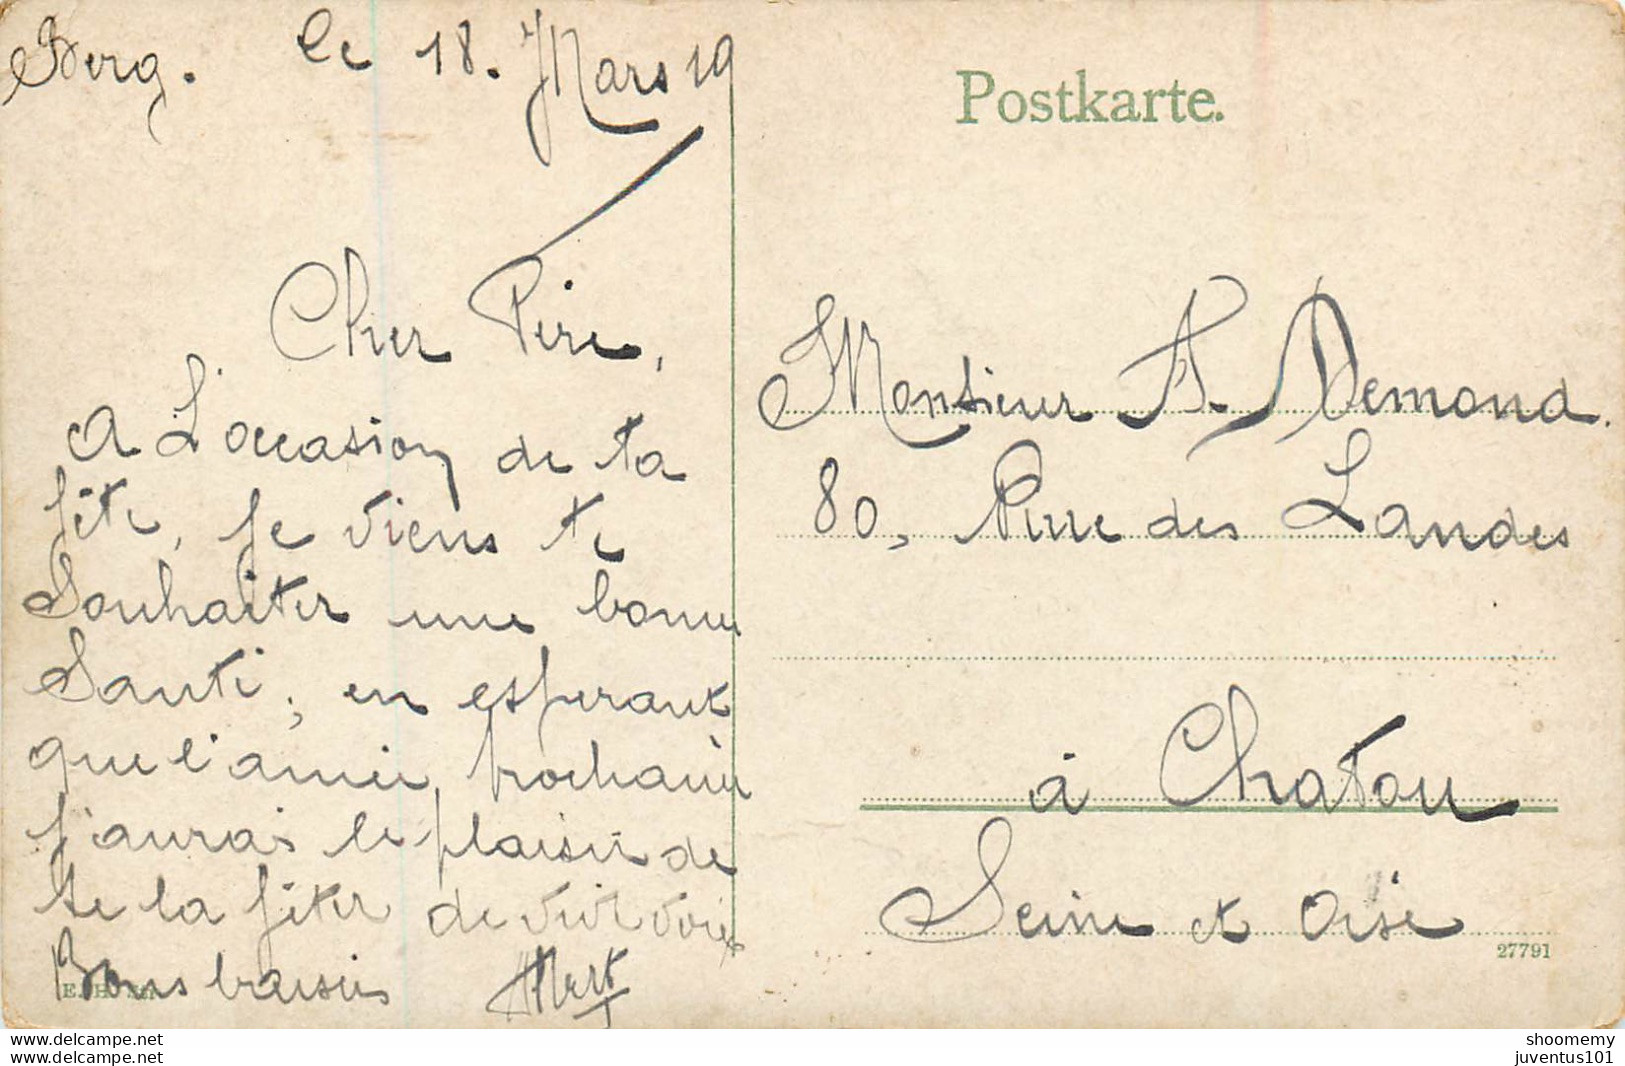 Berg. le 18. Mars 19
Cher Père,
A L'occasion de ta
fête, je viens te
Souhaiter une bonne
Santé, en espérant
que l'année prochaine
j'aurai le plaisir de
te la fêter de vive voix
Bons baisers Albert
Postkarte.
Monsieur A. Demond.
80, Rue des Landes
à Chatou
Seine et Oise
27791
shoomemy
juventus101